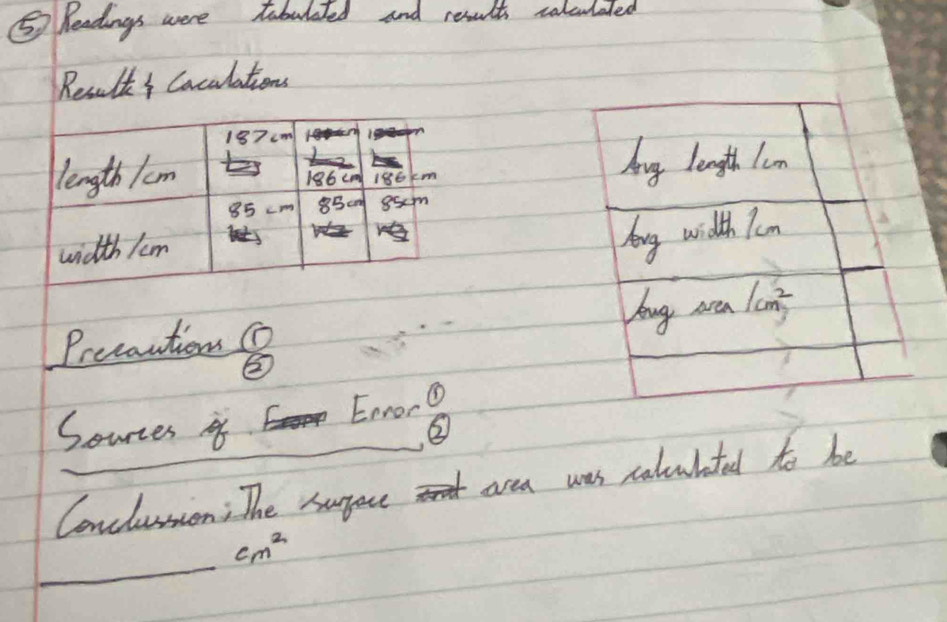 ⑤ Readings were tabulated and results calculated
Results & Caculations
length/cm 187cm 186cm 186cm
width/cm 85cm 85cm 85cm
Avg length/cm
Avg width/cm
Avg area/cm²
Precautions ①
②
Sources of Error ①
②
Conclussion: The surface area was calculated to be
________ cm²